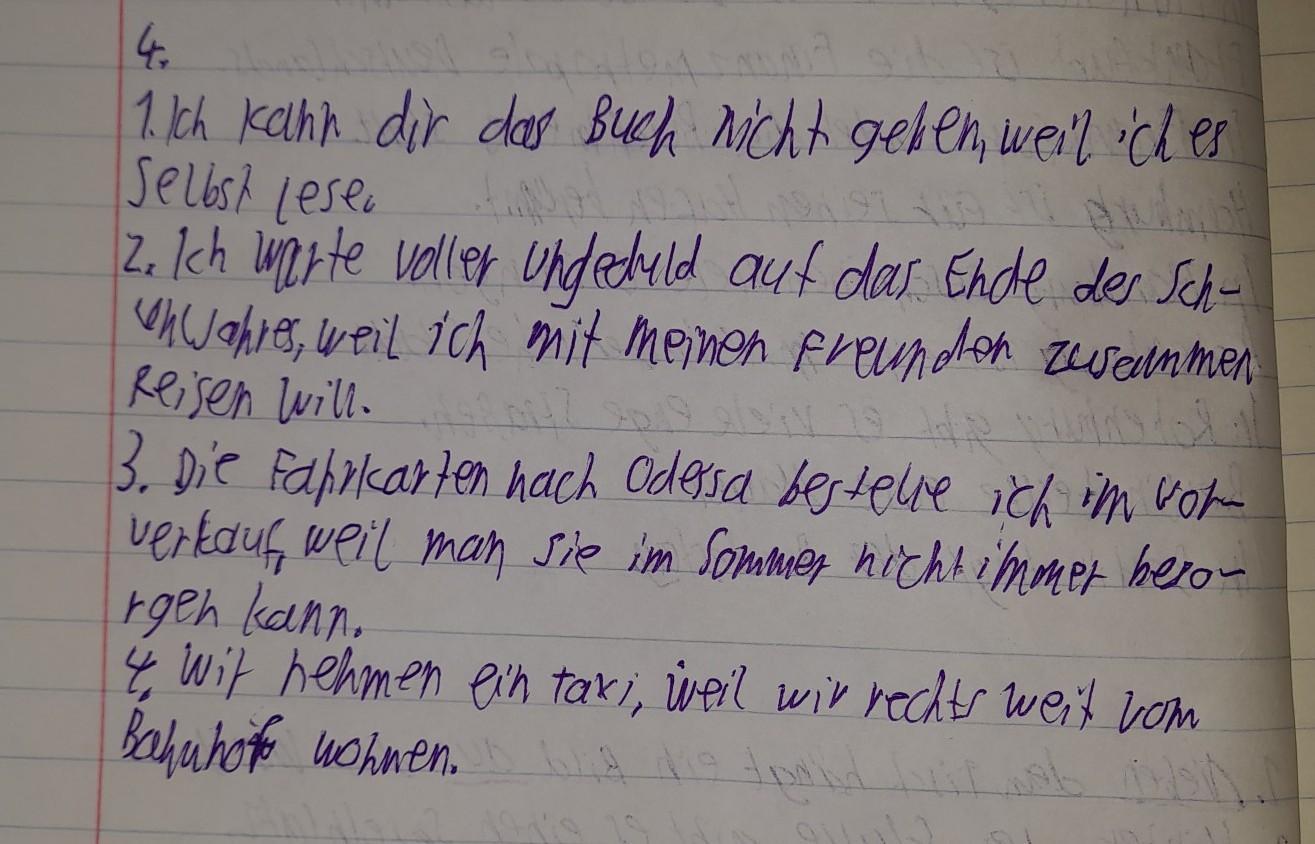 4.
1. Ich kann dir das Buch nicht geben, weil ich es
selbst lese.
2. Ich warte voller Ungeduld auf das Ende des Sch-
Jahres, weil ich mit meinen Freunden zusammen
Reisen will.
3. Die Fahrkarten nach Odessa bestelle ich im Vor-
verkauf, weil man sie im Sommer nicht immer beso-
rgen kann.
4. Wir nehmen ein taxi, weil wir rechts weit vom
Bahnhof wohnen.